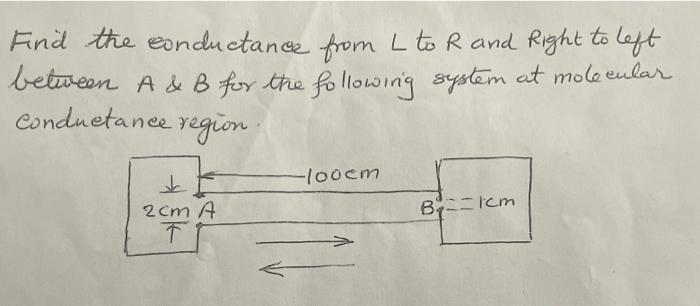 Find the conductance from L to R and Right to left
between A & B for the following system at molecular
Conductance region.
100cm
2cm A
B 1cm